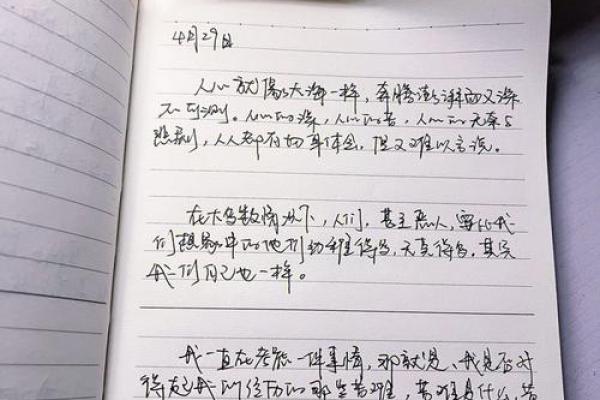 4月29日
人心就像大海一样，奔腾澎湃而又深
不可测。人心的深，人心的苦，人心的无奈与
悲剧，人人都有切身体会，但又难以言说。
在大多数情况下，人们，甚至恶人，要比我
们想象中的他们幼稚得多，天真得多，其实
我们自己也一样。
我一直在考虑一件事情，那就是，我是否对
得起我所经历的那些苦难，苦难是什么，苦